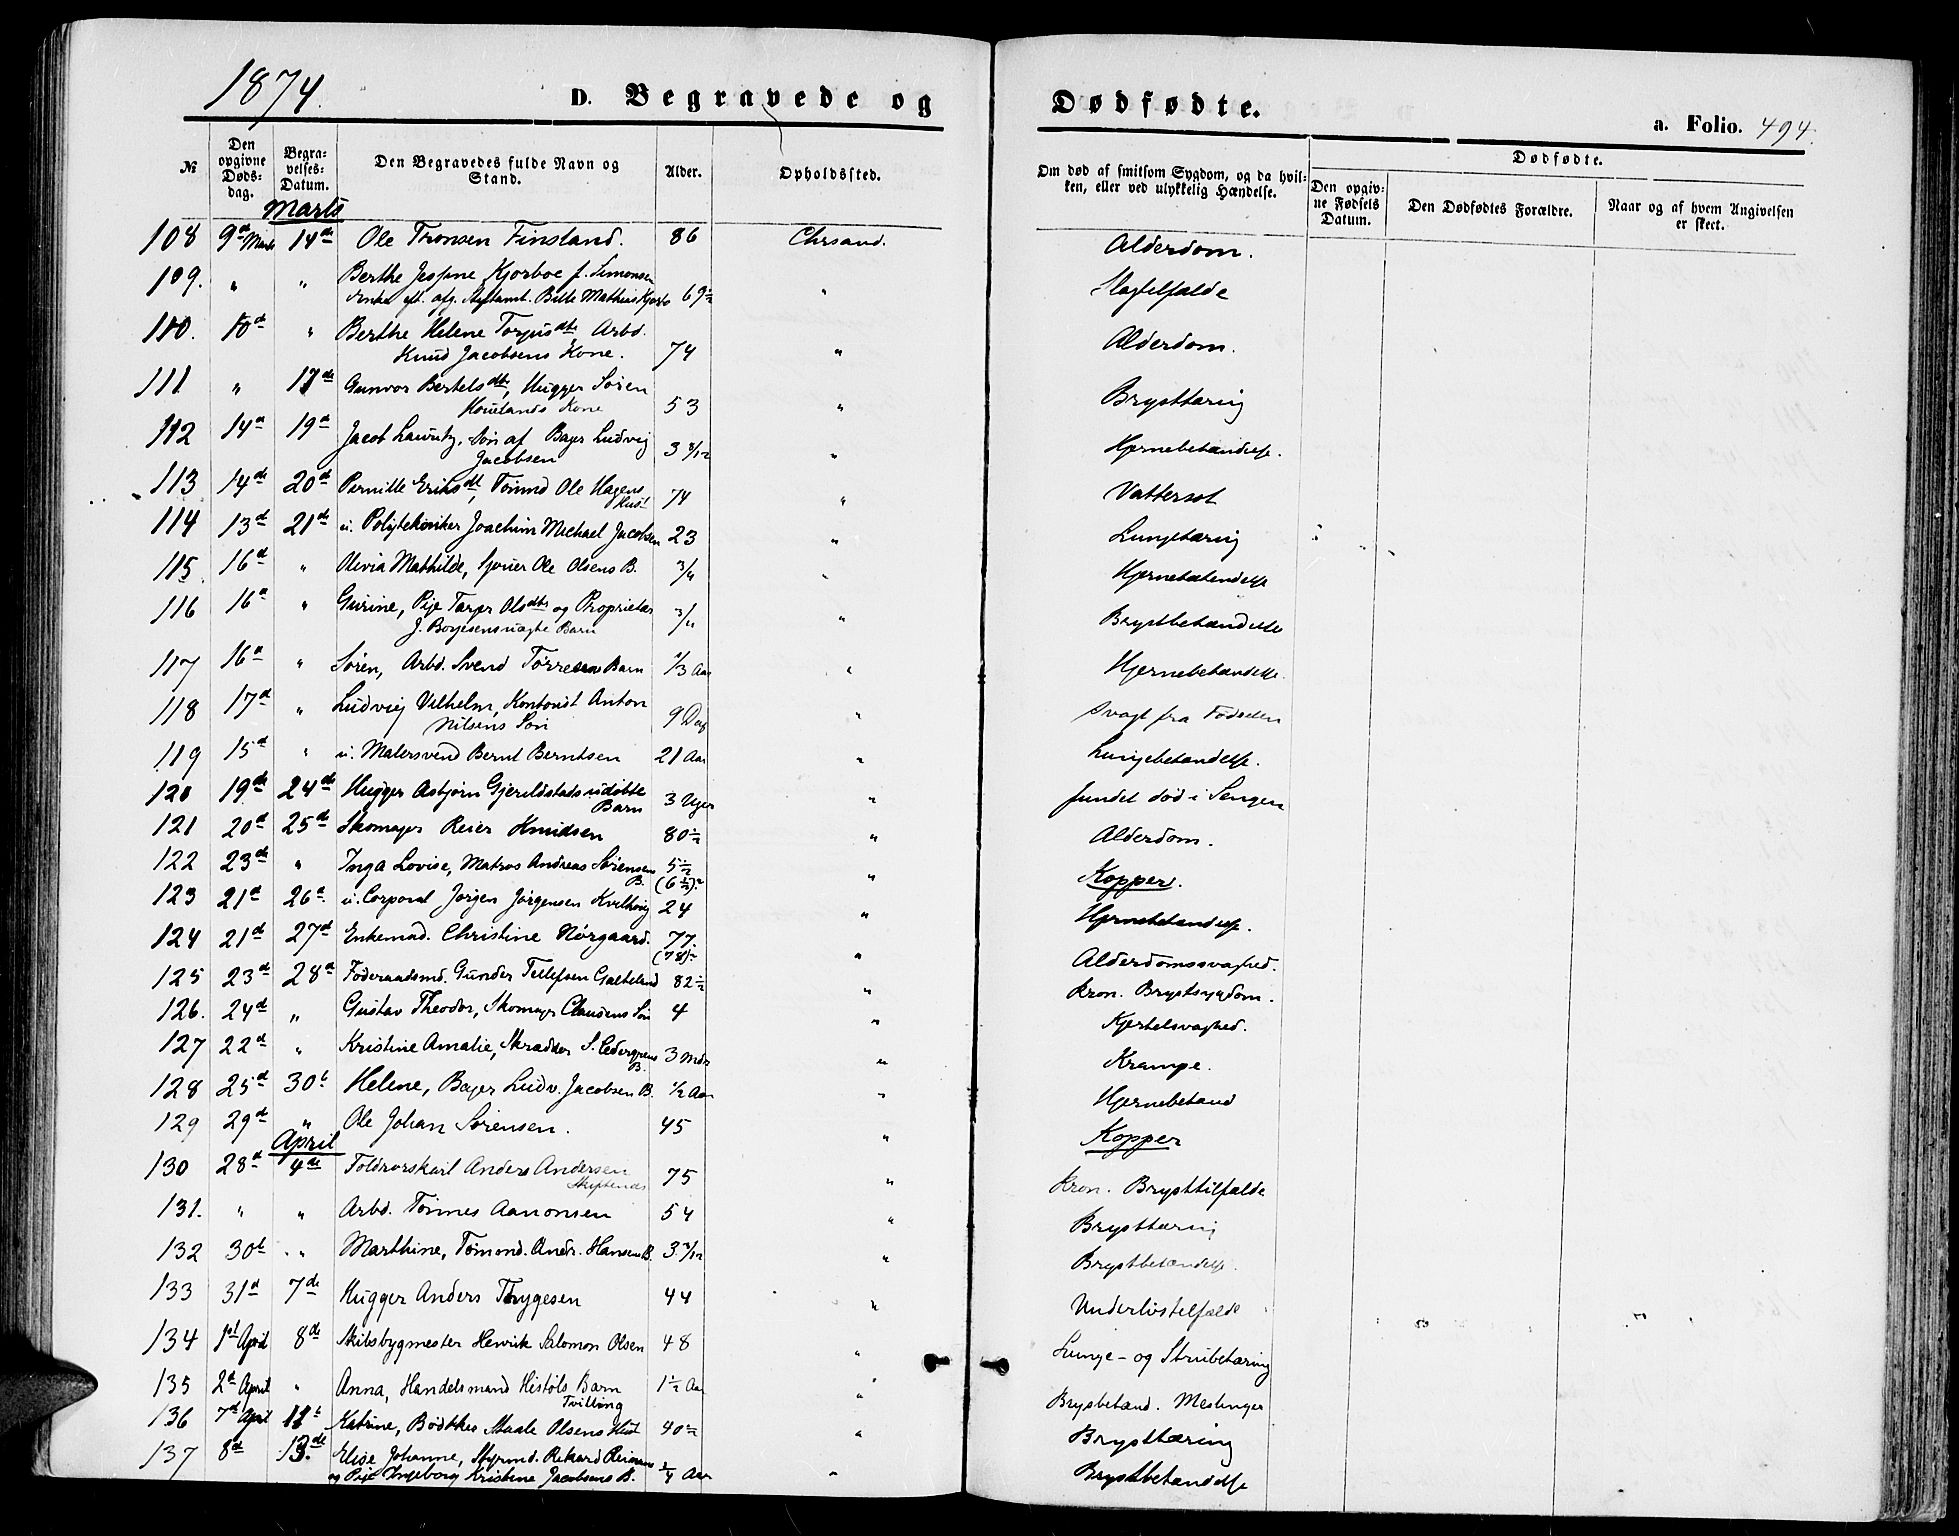 1874.
D. Begravede og Dødfødte.
a. Folio. 494.
№ Den opgivne Dødsdag. Begravelses-Datum. Den Begravedes fulde Navn og Stand. Alder. Opholdssted. Om død af smitsom Sygdom, og da hvilken, eller ved ulykkelig Hændelse. Dødfødte. Den opgivne Fødsels Datum. Den Dødfødtes Forældre. Naar og af hvem Angivelsen er skeet.
Marts
108 9d Marts 14de Ole Tronsen Finsland. 86 Chrsand. Alderdom.
109. " " Berthe Jessine Kjørboe f. Simonsen
Enke eft. afg. Bille Mathias Kjørbo 69½ "
110. 10d " Berthe Helene Torjusdtr Arbd.
Knud Jacobsens Kone. 74 " Alderdom.
111 " 17de Gunvor Bertelsdtr, Hugger Sören
Kone 53 " Brysttæring
112 14d 19d Jacob Lauritz, Sön af Bager Ludvig
Jacobsen 3 8/12 " Hjernebetændelse.
113 14de 20de Pernille Eriksdt, Tömmd Ole Hagens
Hust. 74 " Vattersot
114 13d 21de u. Polytekniker Joachim Michael Jacobsen 23 " Lungetæring
115 16d " Olivia Mathilde, Sjouer Ole Olsens B. " Hjernebetændelse
116 16d " Gurine, Pige Olsdtr og Proprietær
J. Börjesens uægte Barn " Brystbetændelse
117 16d " Sören, Arbd. Svend Törresens Barn 1/3 Aar " Hjernebetændelse
118 17d " Ludvig Vilhelm, Kontorist Anton
Nilsens Sön 9 Dag " Svagt fra Födselen
119 15d " u. Malersvend Bernt Berntsen 21 Aar " Lungebetændelse.
120 19de 24de Hugger Asbjörn Gjerildstads udöbte
Barn 3 Uger " fundet död i Sengen
121 20d 25de Skomager Reier Knudsen 80½ " Alderdom.
122 23de " Inga Lovise, Matros Andreas Sörensen
B. 5½ (6½)? " Kopper.
123 21d 26d. u. Corporal Jörgen Jörgensen 24 " Hjernebetændelse.
124 21d 27d Enkemad. Christine Nörgaard. 77. (78)? " Alderdomssvaghed.
125 23d 28d Föderaadsmd. Gunder Tellefsen Galteland 82½ " Kron. Brystsygdom.
126. 24d " Gustav Theodor, Skomager Claudens Sön 4 " Kjertelsvaghed.
127 22d " Kristine Amalie, Skrædder S. Cedergrens
B. 3 Mdr " Krampe.
128 25d 30t Helene, Bager Ludv. Jacobsen B. ½ Aar " Hjernebetænd
129 29d " Ole Johan Sörensen. 45 " Kopper
April
130 28d 4de Toldrorskarl Anders Andersen
75 " Kron. Brysttilfælde
131. " " Arbd. Tönnes Aanonsen 54 " Brysttæring
132 30t " Marthine, Tömmd. Andr. Hansens B. 3 " Brystbetændelse.
133 31d 7de Hugger Anders Thygesen 44 " Underlivstilfælde
134 1st April 8de Skibsbygmester Henrik Salomon Olsen 48 " Lunge- og Strubetæring
135 2d April " Anna, Handelsmand Histöls Barn
Tvilling 1½ Aar " Brystbetænd. Meslinger
136 7d April 11t Katrine, Bödkker Staale Olsens Hust 40½ " Brysttæring
137 8d 13de Elise Johanne, Styrmd. Rikard Reiersen
og Pige Ingeborg Kristine Jacobsens B. ¼ Aar " Brystbetændelse